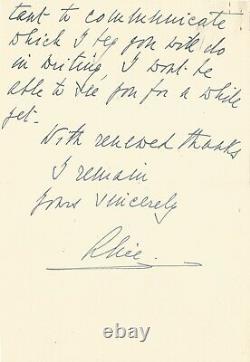 tant to communicate
which I beg you will do
in writing, I wont be
able to see you for a while
yet.
With renewed thanks
I remain
Yours sincerely